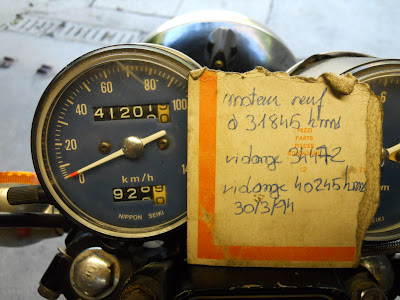 0
20
40
60
80
100
41201
km/h
92
NIPPON SEIKI
moteur neuf
à 31845 kms
vidange 34472
vidange 40245 kms
30/3/94
PEZZI
PARTS
6